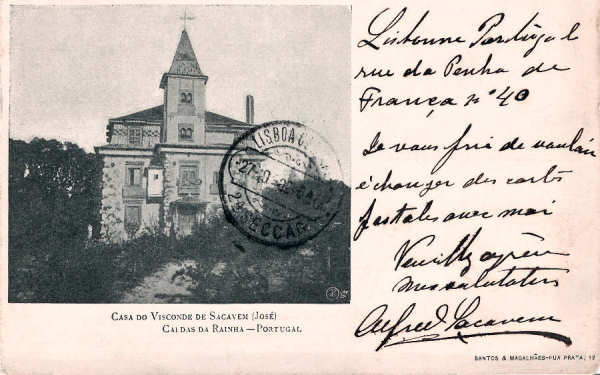 Lisbonne Portugal
rue da Penha de
França nº 40
Je vous prie de vouloir
échanger des carts
postales avec moi
Veuillez agréer
mes salutations
Alfred Sacavem
LISBOA C
2ª SECCÃO
CASA DO VISCONDE DE SACAVEM (JOSÉ)
CALDAS DA RAINHA — PORTUGAL
SANTOS & MAGALHÃES-RUA PRATA, 12